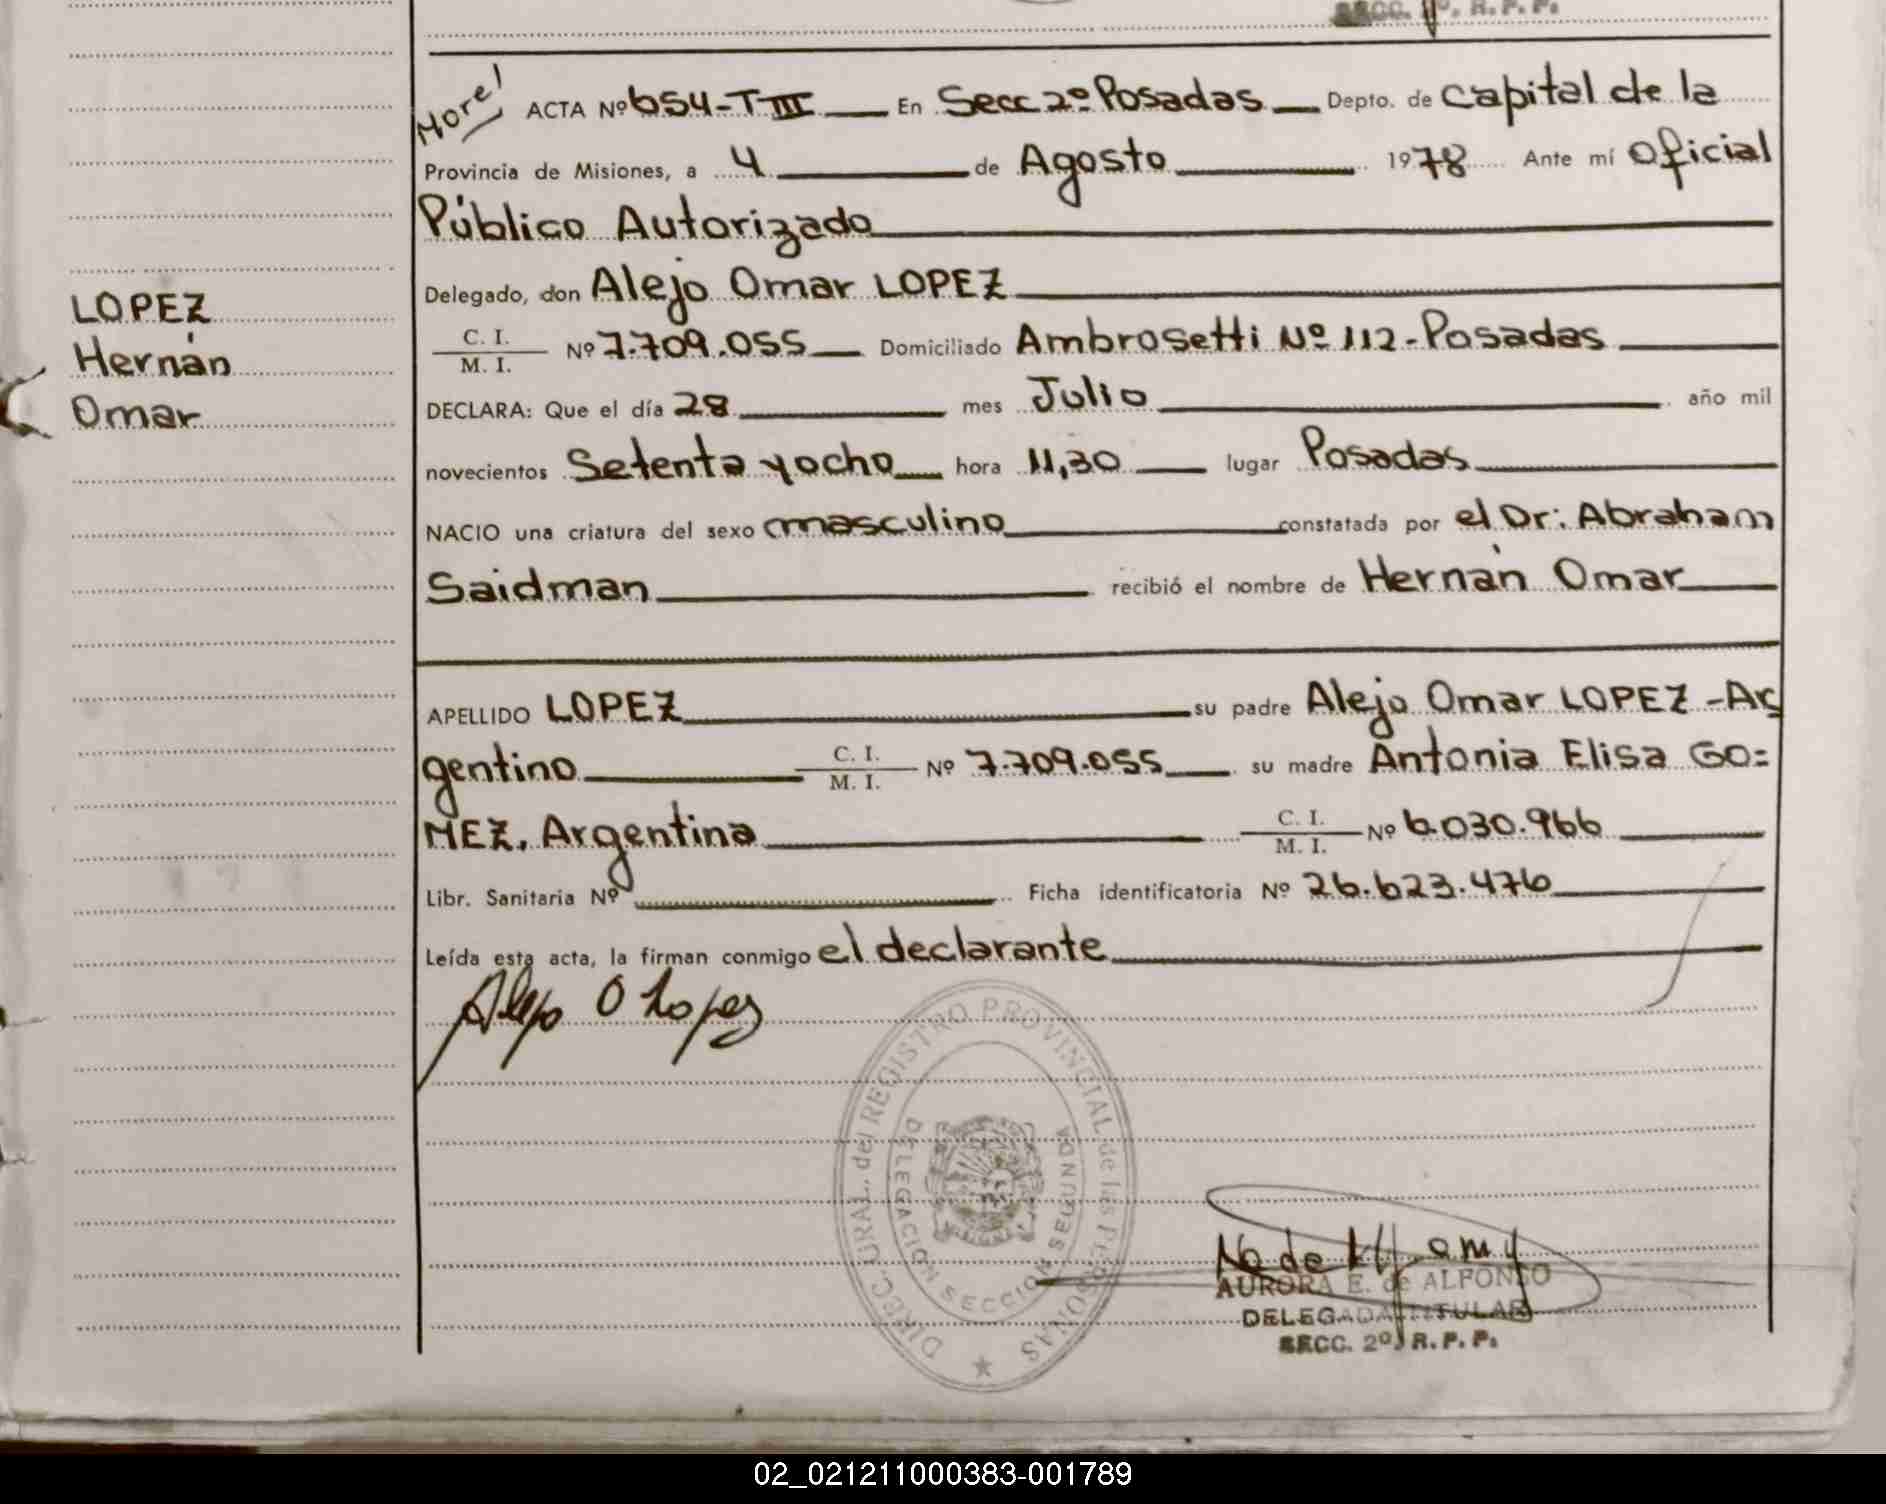 SECC. 2º, R. P. P.
ACTA Nº 654-T III En Secc 2º Posadas Depto. de Capital de la
Provincia de Misiones, a 4 de Agosto 1978 Ante mí Oficial
Público Autorizado
Delegado, don Alejo Omar LOPEZ
C. I.
M. I. Nº 7.709.055 Domiciliado Ambrosetti Nº 112-Posadas
DECLARA: Que el día 28 mes Julio año mil
novecientos Setenta y ocho hora 11,30 lugar Posadas
NACIO una criatura del sexo masculino constatada por el Dr: Abraham
Saidman recibió el nombre de Hernán Omar
APELLIDO LOPEZ su padre Alejo Omar LOPEZ -Ar
gentino C. I. M. I. Nº 7.709.055 su madre Antonia Elisa GO=
MEZ. Argentina C. I. M. I. Nº 6.030.966
Libr. Sanitaria Nº Ficha identificatoria Nº 26.623.476
Leída esta acta, la firman conmigo el declarante
Alejo O Lopez
LOPEZ
Hernán
Omar
DIRECC. GRAL. del REGISTRO PROVINCIAL de las PERSONAS
DELEGACION SECCION SEGUNDA
AURORA E. de ALFONSO
DELEGADA TITULAR
SECC. 2º R. P. P.
02_021211000383-001789